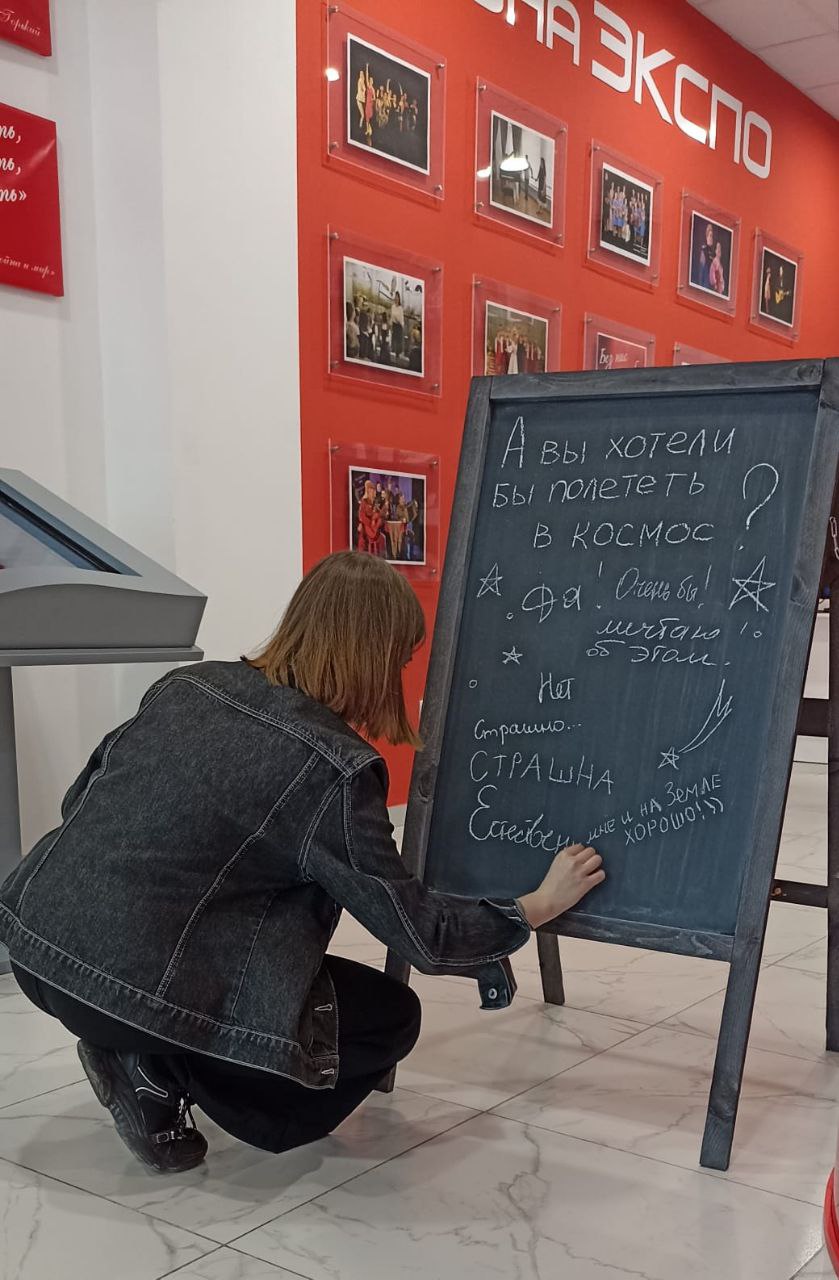 Горький
ть,
ть,
ть»
ойна и мир»
НА ЭКСПО
Без нас
А вы хотели
бы полететь
в космос ?
Да! Очень бы!
мечтаю
об этом.
Нет
Страшно...
СТРАШНА
Естествен
мне и на Земле
хорошо!))